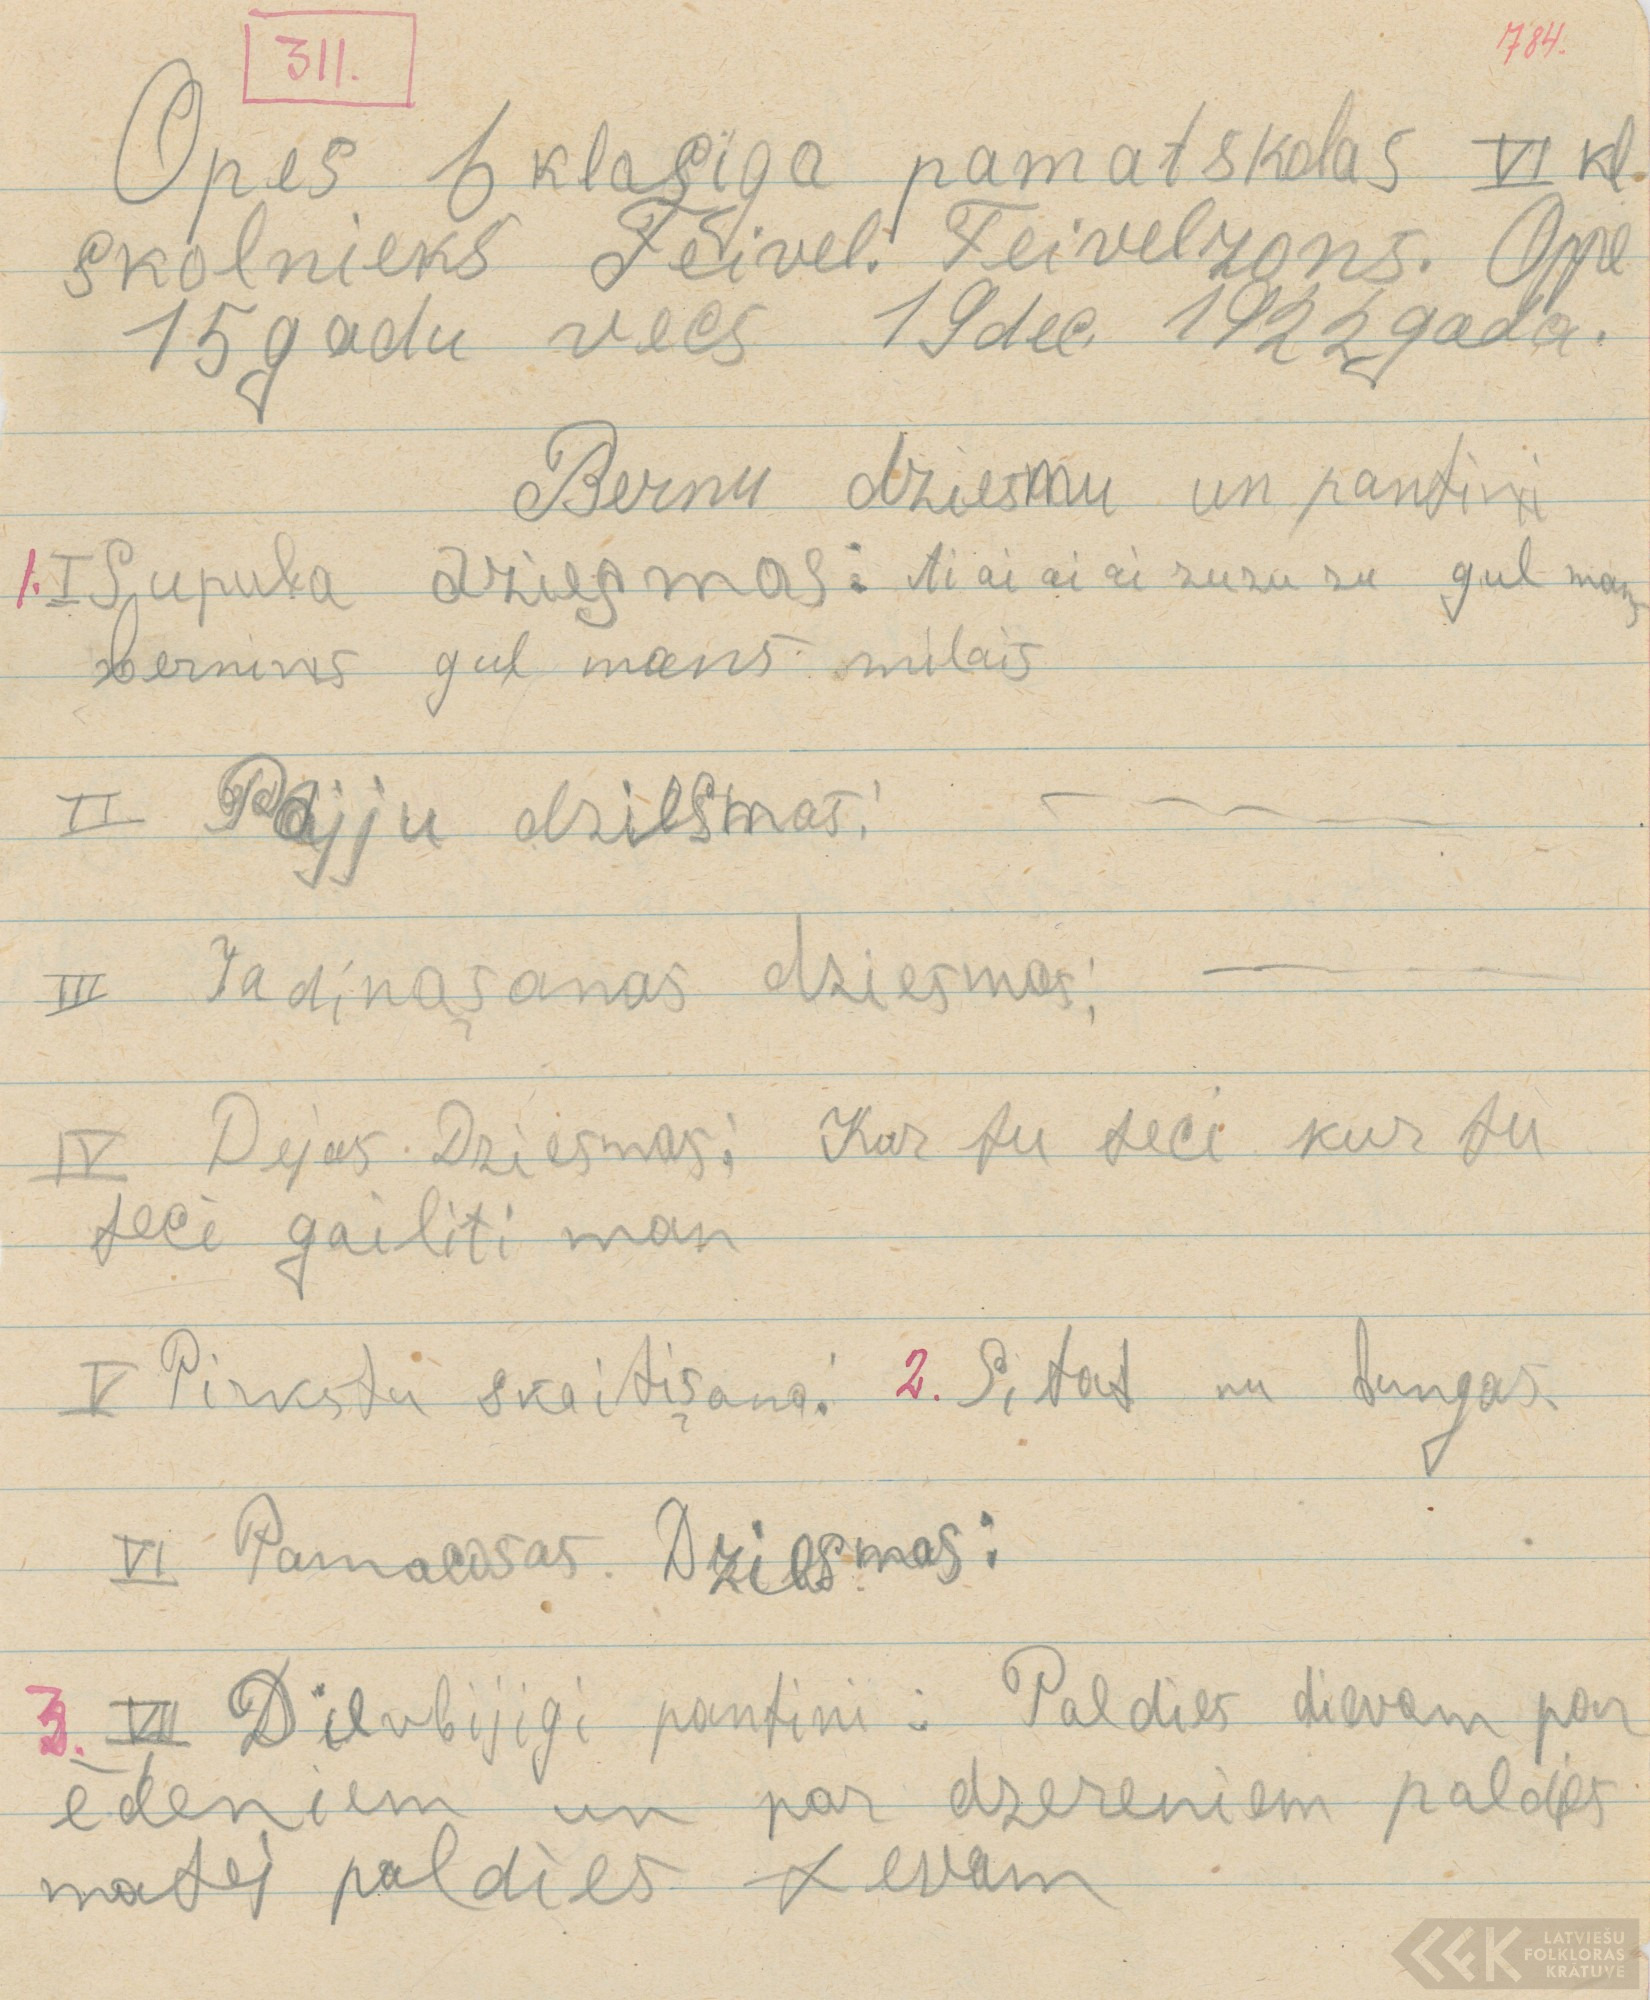 311.
784.
Opes 6 klasiga pamatskolas VI kl.
skolnieks Feivel. Feivelzons. Ope
15 gadu vecs 19 dec. 1922 gada.
Bernu dziesmu un pantini
1. I Šupuļa dziesmas: Ai ai ai ai zuzu zu gul mans
bernins gul mans milais
II Paijju dziesmas:
III Jadinaşanas dziesmas:
IV Dejas Dziesmas: Kur tu teci kur tu
teci gailiti man
V Pirkstu skaitişana: 2. Sitat nu tungas.
VI Pamacosas Dziesmas:
3. VII Dievbijigi pantini: Paldies dievam par
ēdeniem un par dzereniem paldies
matej paldies tevam
LATVIEŠU
FOLKLORAS
KRĀTUVE